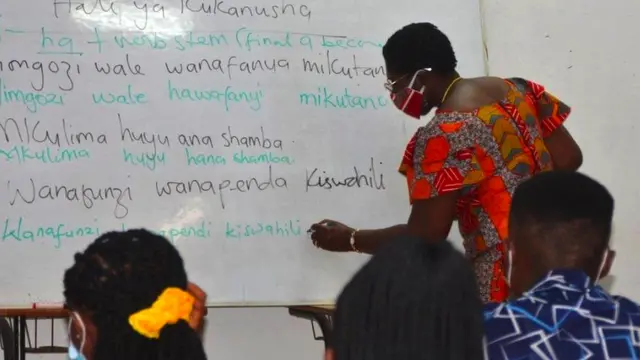 Hali ya Kukanusha
ha + verb stem (final a becom
imgozi wale wanafanya mikutan
limgozi wale hawafanyi mikutano
Mkulima huyu ana shamba.
Mkulima huyu hana shamba.
Wanafunzi wanapenda Kiswahili
Wanafunzi pendi kiswahili